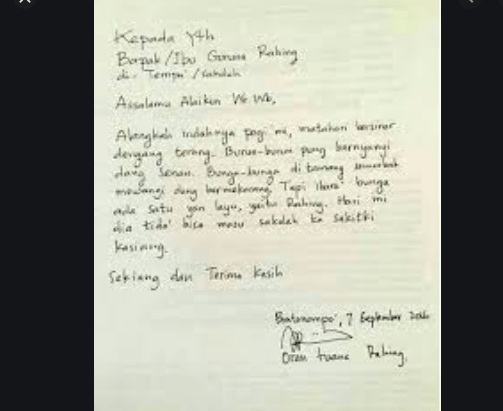 Kepada Yth
Bapak/Ibu Guruna Rahing
di- Tempa' / sakolah
Assalamu Alaikun Wr Wb,
Alangkah indahnya pagi ini, matahari bersinar
dengang terang. Burun-burun pung bernyanyi
dang senan. Bunga-bunga di tamang semerbak
mewangi dang bermekarang. Tapi ibara' bunga
ada satu yan layu, yaitu Rahing. Hari ini
dia tida' bisa masu sakolah ka sakitki
kasiang.
Sekiang dan Terima Kasih
Bontonompo', 7 September
Oran tuana Rahing,